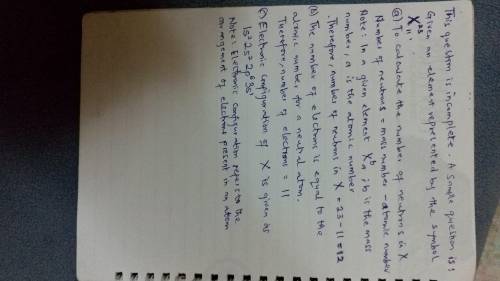 This question is incomplete. A sample question is:
Given an element represented by the symbol
X²³₁₁.
(a) To calculate the number of neutrons in X
Number of neutrons = mass number - atomic number
Note: In a given element Xᵇₐ; b is the mass
number, a is the atomic number
Therefore, number of neutrons in X = 23 - 11 = 12
(b) The number of electrons is equal to the
atomic number for a neutral atom.
Therefore, number of electrons = 11
(c) Electronic configuration of X is given as
1s² 2s² 2p⁶ 3s¹
Note: Electronic configuration refers to the
arrangement of electrons present in an atom